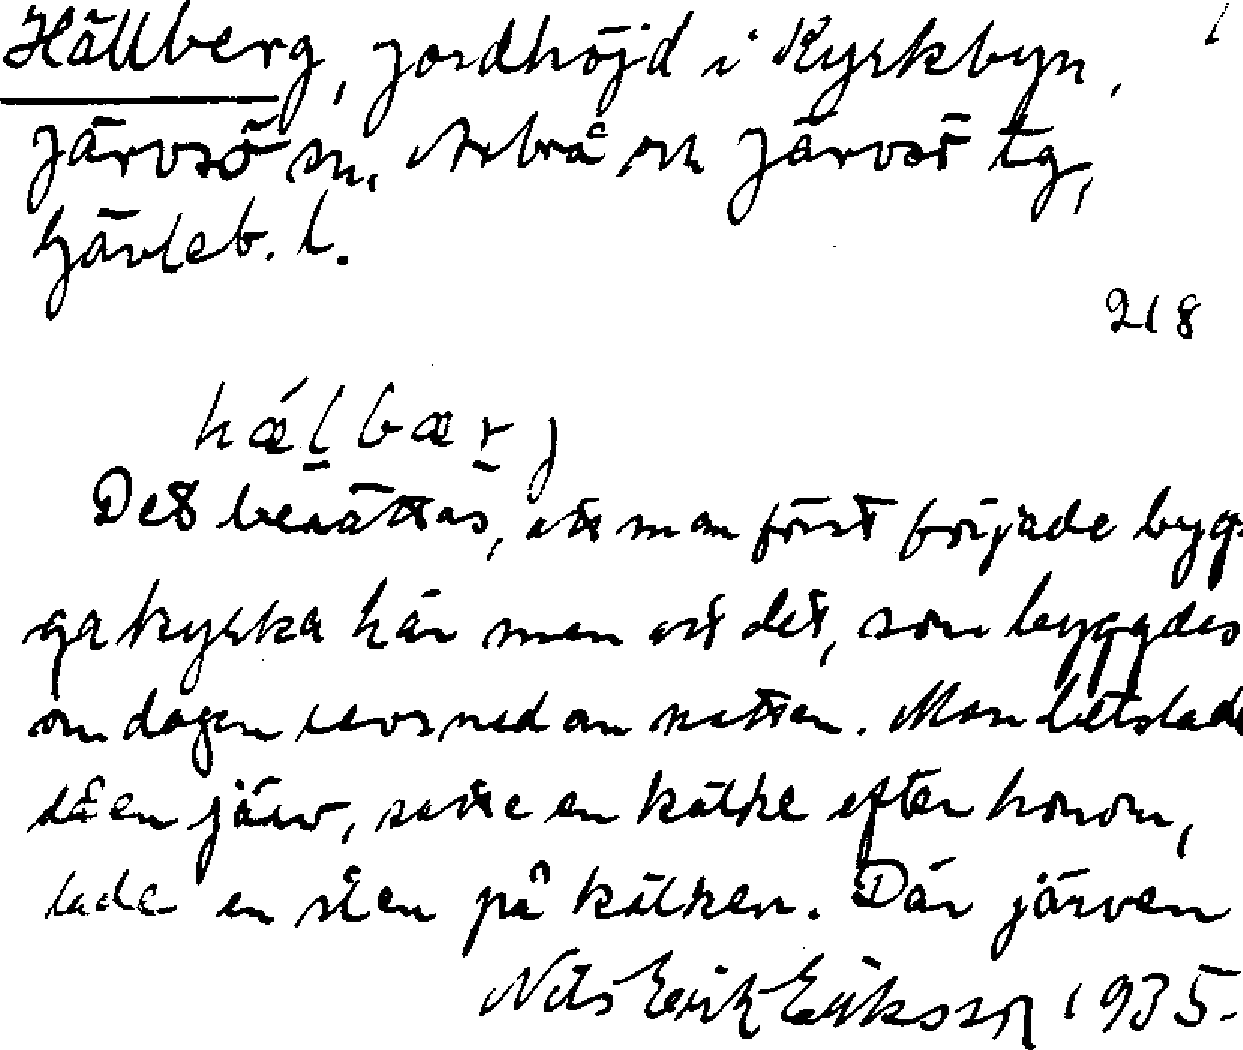 Hällberg, jordhöjd i Kyrkbyn,
Järvsö sn, Arbrå och Järvsö tg,
Gävleb. l.
218
hǽl̠bær̠j
Det berättas, att man först började byg-
ga kyrka här men att det, som byggdes
om dagen revs ned om natten. Man betslade
då en järv, satte en kälke efter honom,
lade en sten på kälken. Där järven
Nils Erik Eriksson 1935.